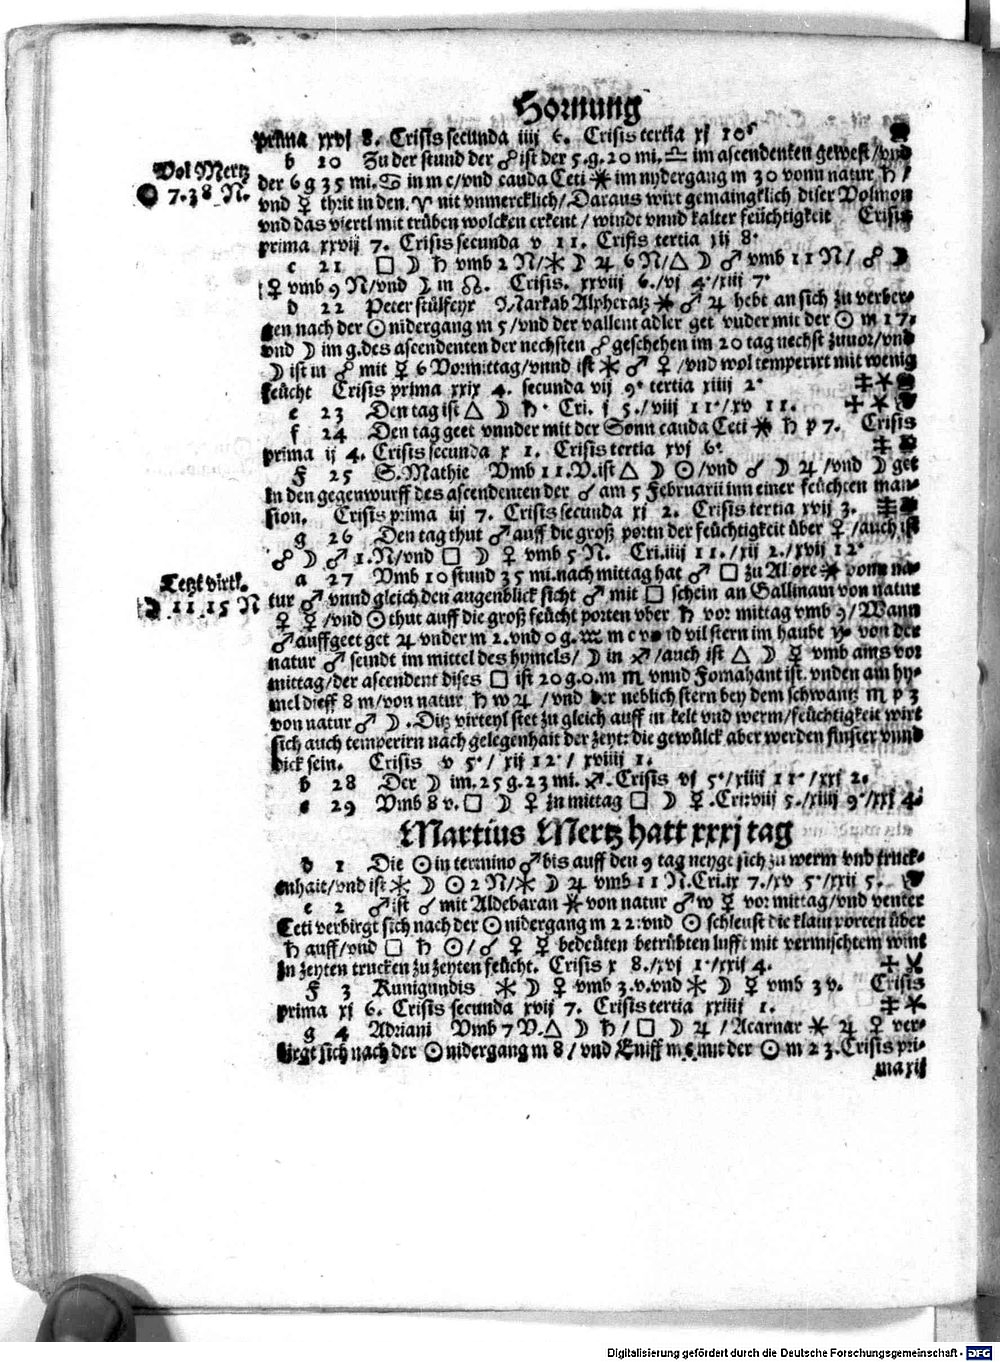 Hornung
prima xxvj 8. Crisis secunda iiij 6. Crisis tertia xj 10.
Vol Mertz
● 7.38 N.
b 20 Zu der stund der ☍ ist der 5.g.20 mi. ♎ im ascendenten gewest/vnd
der 6 g 35 mi. ♋ in m c/vnd cauda Ceti ✶ im nydergang m 30 vonn natur ♄ /
vnd ☿ thrit in den. ♈ nit vnmercklich/Daraus wirt gemaingklich diser Volmon
vnd das viertl mit trüben wolcken erkent/windt vnnd kalter feüchtigkeit Crisis
prima xxvij 7. Crisis secunda v 11. Crisis tertia xij 8.
c 21 □ ☽ ♄ vmb 2 N/✶ ☽ ♃ 6 N/△ ☽ ♂ vmb 11 N/ ☍ ☽
♀ vmb 9 N/vnd ☽ in ☊. Crisis. xxviij 6./vj 4./xiij 7.
d 22 Peter stülfeyr Markab Alpheratz ✶ ♂ ♃ hebt an sich zu verber-
gen nach der ☉ nidergang m 5/vnd der vallent adler get vnder mit der ☉ m 17.
vnd ☽ im g.des ascendenten der nechsten ☍ geschehen im 20 tag nechst zuuor/vnd
☽ ist in ☍ mit ☿ 6 Vormittag/vnnd ist ✶ ♂ ♀ /vnd wol temperirt mit wenig
feücht Crisis prima xxix 4. secunda vij 9. tertia xiiij 2.
e 23 Den tag ist △ ☽ ♄. Cri. j 5./viij 11./xv 11.
f 24 Den tag geet vnnder mit der Sonn cauda Ceti ✶ ♄ p 7. Crisis
prima ij 4. Crisis secunda x 1. Crisis tertia xvj 6.
F 25 S.Mathie Vmb 11.V.ist △ ☽ ☉/vnd ☌ ☽ ♃ /vnd ☽ get
In den gegenwurff des ascendenten der ☌ am 5 Februarii inn einer feüchten man-
sion. Crisis prima iij 7. Crisis secunda xj 2. Crisis tertia xvij 3.
g 26 Den tag thut ♂ auff die groß portn der feüchtigkeit über ♀ /auch ist
☍ ☽ ♂ 1.N/vnd □ ☽ ♀ vmb 5 N. Cri.iiij 11./xij 2./xvij 12.
Letzt virtl.
☽ 11.15 N
a 27 Vmb 10 stund 35 mi.nach mittag hat ♂ □ zu ✶ vonn na-
tur ♂ vnnd gleich den augenblick sicht ♂ mit □ schein an Gallinam von natur
♀ ☿ /vnd ☉ thut auff die groß feücht porten vber ♄ vor mittag vmb 9/Wann
♂ auffgeet get ♃ vnder m 2.vnd 0 g. ♒ m c vnd vil stern im haubt ♑ von der
natur ♂ seindt im mittel des hymels/ ☽ in ♐ /auch ist △ ☽ ☿ vmb ains vor
mittag/der ascendent dises □ ist 20 g.0.m ♏ vnnd Fomahant ist vnden am hy-
mel dieff 8 m/von natur ♄ w ♃ /vnd der neblich stern bey dem schwantz ♏ p 3
von natur ♂ ☽. Ditz virteyl stet zu gleich auff in kelt vnd werm/feüchtigkeit wirt
sich auch temperirn nach gelegenhait der zeyt: die gewülck aber werden finster vnnd
dick sein. Crisis v 5./ xij 12./xviiij 1.
b 28 Der ☽ im.25 g.23 mi. ♐. Crisis vj 5./xiiij 11./xxj 2.
c 29 Vmb 8 v. □ ☽ ♀ zn mittag □ ☽ ☿. Cri:viij 5./xiiij 9./xxj 4.
Martius Mertz hatt xxxj tag
d 1 Die ☉ in termino ♂ bis auff den 9 tag neygt sich zu werm vnd truck-
enhait/vnd ist ✶ ☽ ☉ 2 N/✶ ☽ ♃ vmb 11 N.Cri.ix 7./xv 5./xxij 5.
e 2 ♂ ist ☌ mit Aldebaran ✶ von natur ♂ w ☿ vor mittag/vnd venter
Ceti verbirgt sich nach der ☉ nidergang m 22:vnd ☉ schleust die klain porten über
♄ auff/vnd □ ♄ ☉/☌ ♀ ☿ bedeüten betrübten lufft mit vermischtem wint
In zeyten trucken zu zeyten feücht. Crisis x 8./xvj 1./xxij 4.
F 3 Kunigundis ✶ ☽ ♀ vmb 3.v.vnd ✶ ☽ ☿ vmb 3 v. Crisis
prima xj 6. Crisis secunda xvij 7. Crisis tertia xxiiij 1.
g 4 Adriani Vmb 7 V.△ ☽ ♄/ □ ☽ ♃ /Acarnar ✶ ♃ ♀ ver-
birgt sich nach der ☉ nidergang m 8/ vnd Eniff m 6 mit der ☉ m 23. Crisis pri-
ma xij
Digitalisierung gefördert durch die Deutsche Forschungsgemeinschaft - DFG